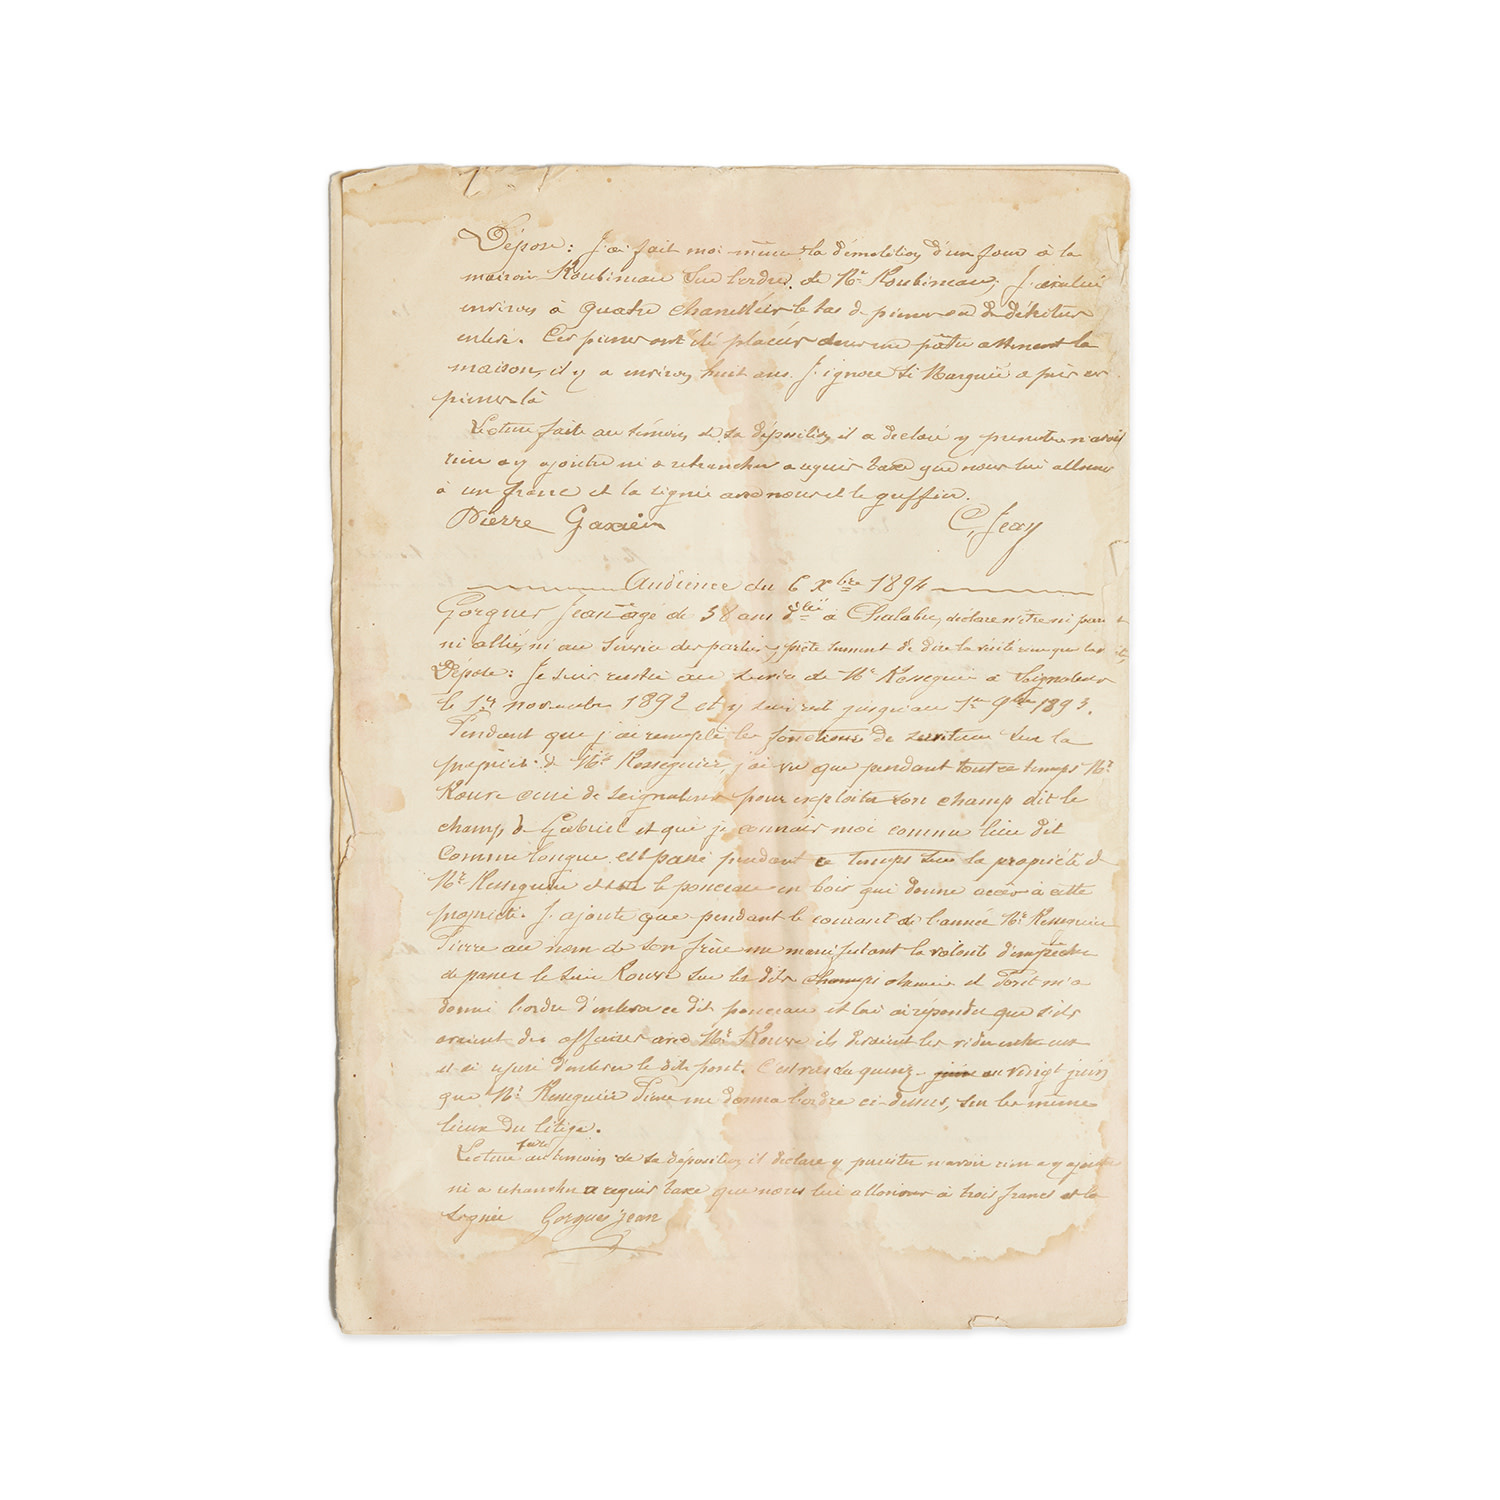 Dépose : J'ai fait moi même la démolition d'un four à la
maison Roubineau sur l'ordre de Mr Roubineau, J'évalue
environ à quatre le tas de pierres ou de détritus
enlevé. Ces pierres ont été placées dans une attenant la
maison, il y a environ huit ans. J'ignore si a pris ces
pierres là
Lecture faite au témoin de sa déposition, il a déclaré y persister n'avoir
rien a y ajoutre ni a retrancher a requis taxe que nous lui allouons
à un franc et la signée avec nous et le greffier.
Pierre C. Jean
Audience du 6 Xbre 1894
Gorgues Jean âgé de 38 ans à Chalabre, déclare n'être ni parent
ni allié, ni au service des parties, prête serment de dire la vérité rien que la vérité
Dépose : Je suis rentré au service de Mr Rességuier à
le 1er novembre 1892 et y suis resté jusqu'au 1er 9bre 1893.
Pendant que j'ai remplé les fonctions de sur la
propriété de Mr Rességuier, j'ai vu que pendant tout ce temps Mr
Rouvre de pour exploiter son champ dit le
champ de Gabriel et que je connais moi comme lieu dit
Comme longue est passé pendant ce temps sur la propriété de
Mr Rességuier et sur le ponceau en bois qui donne accès à cette
propriété. J'ajoute que pendant le courant de l'année Mr Rességuier
Pierre au nom de son frère me manifestant la volonté d'empêcher
de passer le sieur Rouvre sur les dits champs chemin et m'a
donné l'ordre d'enlever ce dit ponceau et lui ai répondu que s'ils
avaient des affaires avec Mr Rouvre ils devaient les vider entre eux
et ai refusé d'enlever le dit pont. C'est vers du quinze au vingt juin
que Mr Rességuier Pierre me donna l'ordre ci-dessus, sur les mêmes
lieux du litige.
Lecture faite au témoin de sa déposition il déclare y persister n'avoir rien a y ajouter
ni a retrancher a requis taxe que nous lui allouons à trois francs et la
signée Gorgues Jean